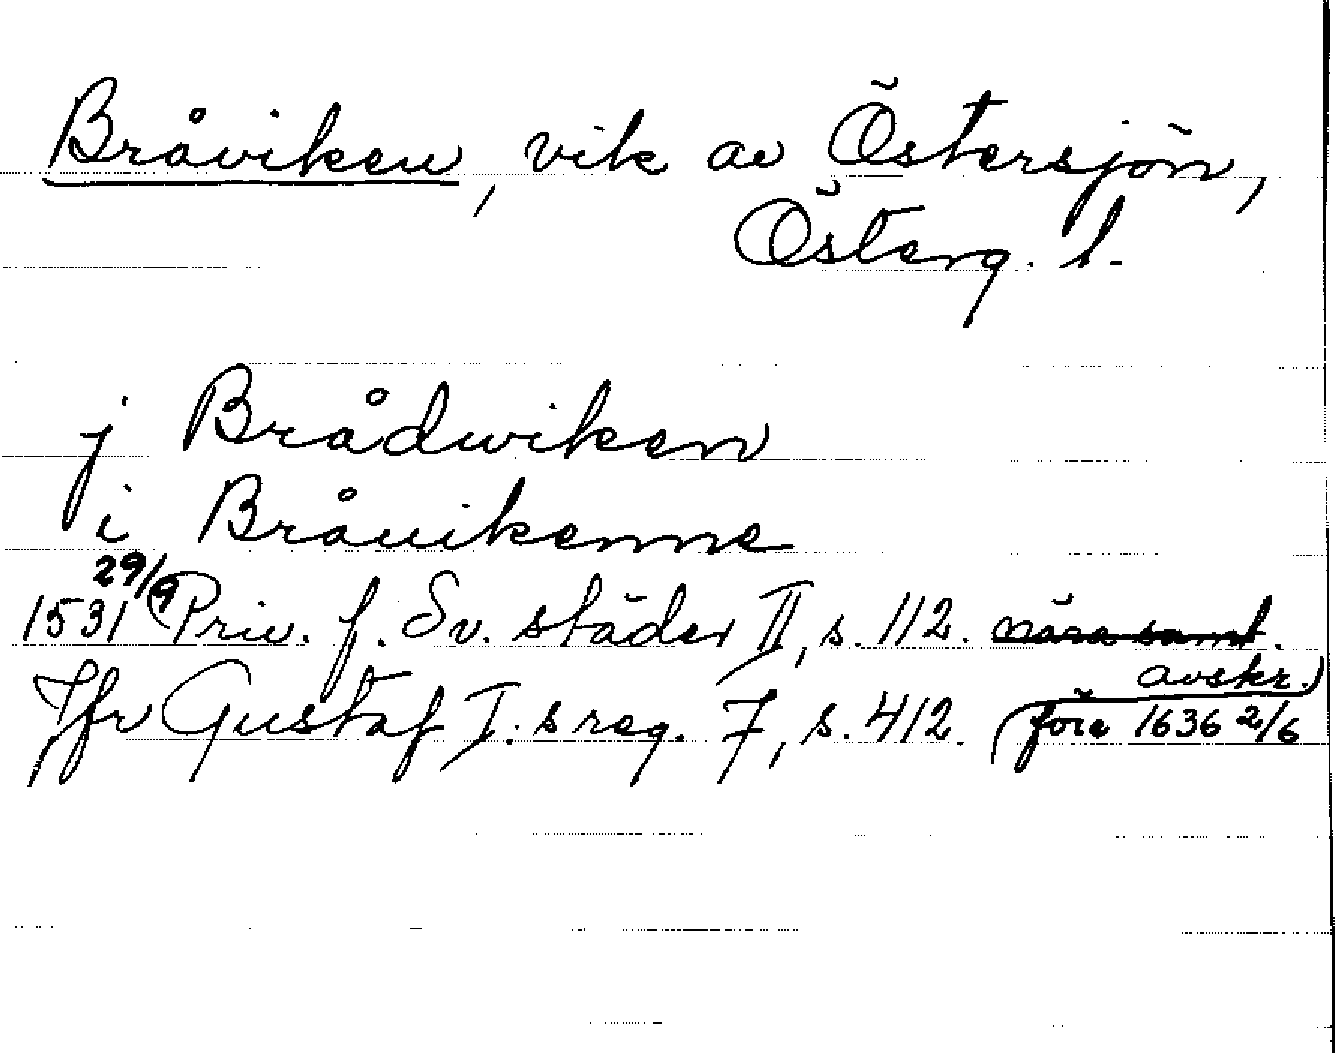 Bråviken, vik av Östersjön,
Österg. l.
j Brådwiken
i Bråuikenne
1531 29/9 Priv. f. Sv. städer II, s. 112. nära samt.
avskr.)
Jfr Gustaf I:s reg. 7, s. 412. (före 1636 2/6